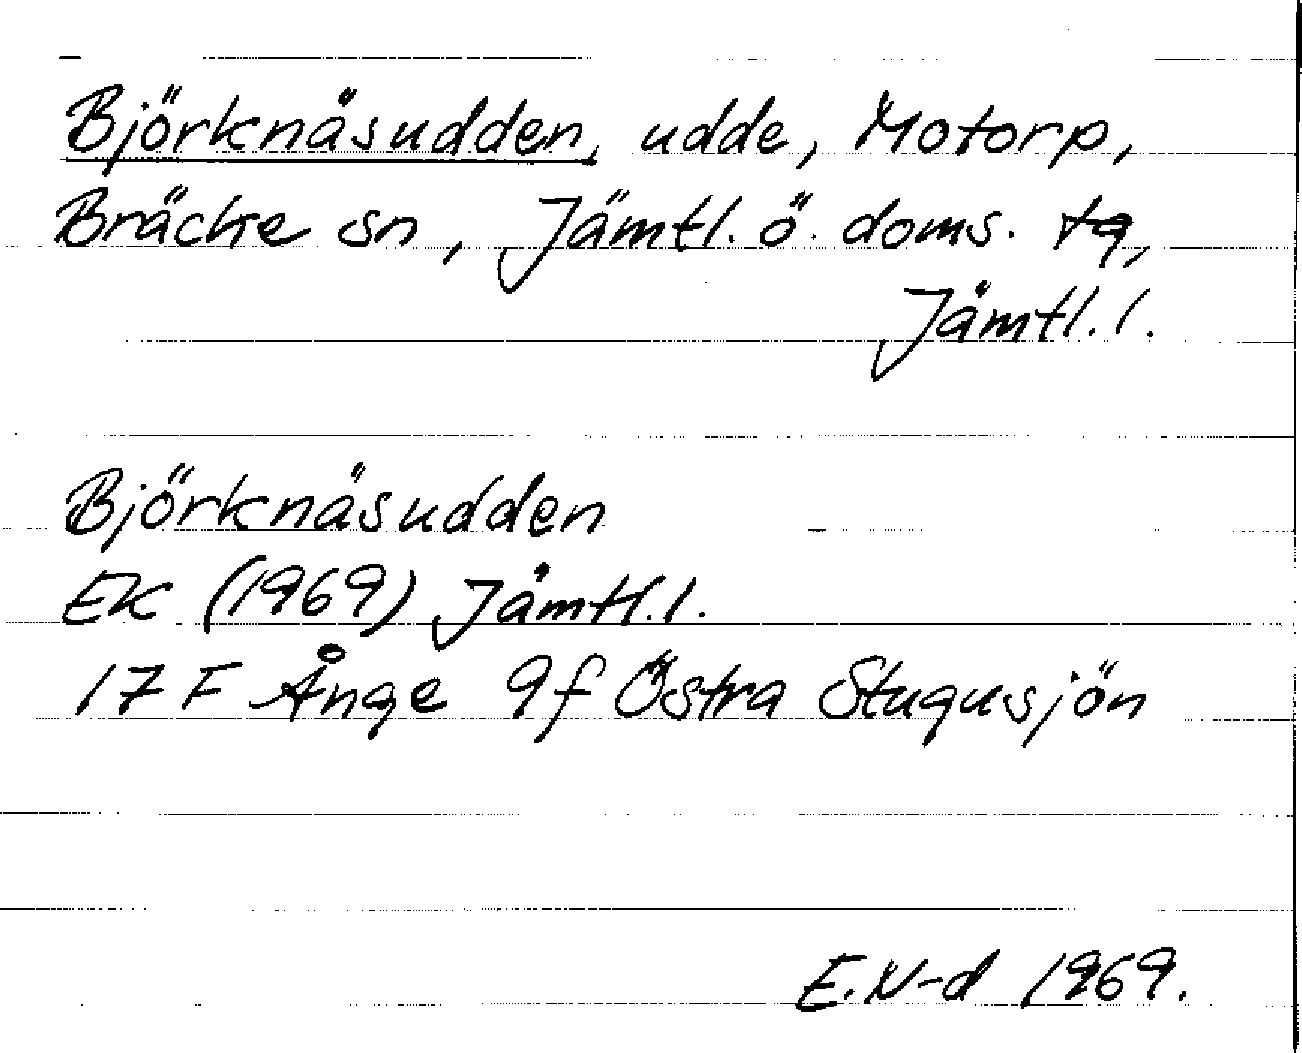 Björknäsudden, udde, Motorp,
Bräcke sn, Jämtl. ö. doms. tg,
Jämtl. l.
Björknäsudden
EK (1969) Jämtl. l.
17 F Ånge 9f Östra Stugusjön
E. N-d 1969.